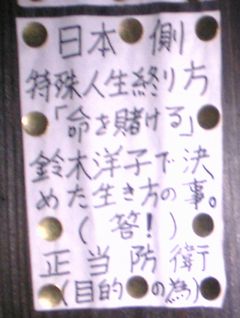 日本側
特殊人生終り方
「命を賭ける」
鈴木洋子で決
めた生き方の事。
(答!)
正当防衛
(目的の為)